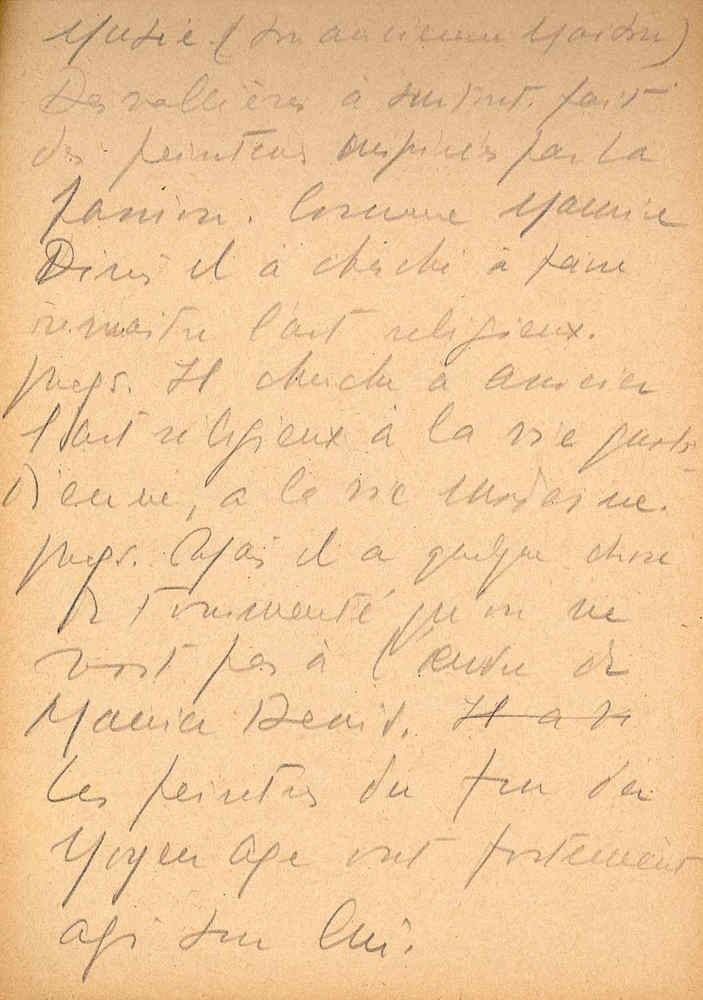 Musée (son ancienne Maison)
Desvallières a surtout fait
des peintures inspirées par la
Passion. Comme Maurice
Denis il a cherché à faire
renaître l'art religieux.
Il cherche à associer
l'art religieux à la vie quoti
dienne, a la vie moderne.
Mais il a quelque chose
de tourmenté qu'on ne
voit pas à l'œuvre de
Maurice Denis. Il a
Les peintres du fin du
Moyen age ont fortement
agi sur lui.